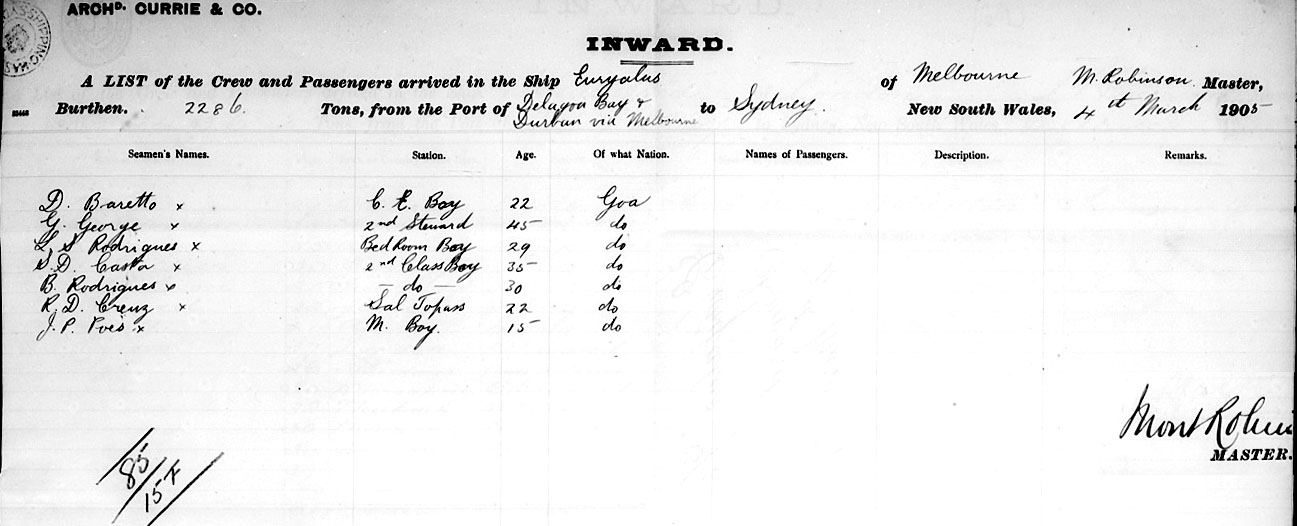 ARCHD. CURRIE & CO.
INWARD.
A LIST of the Crew and Passengers arrived in the Ship Euryalus of Melbourne M. Robinson Master,
Burthen. 2286. Tons, from the Port of Delagoa Bay & Durban via Melbourne to Sydney. New South Wales, 4th March 1905
Seamen's Names. Station. Age. Of what Nation. Names of Passengers. Description. Remarks.
D. Baretto x C. E. Boy 22 Goa
G. George x 2nd Steward 45 do
L. S Rodrigues x Bed Room Boy 29 do
S. D. Casta x 2nd Class Boy 35 do
B. Rodrigues x — do — 30 do
R. D. Creuz x Sal Topass 22 do
J. P. x M. Boy. 15 do
Mont Robin
MASTER.
85
15 F